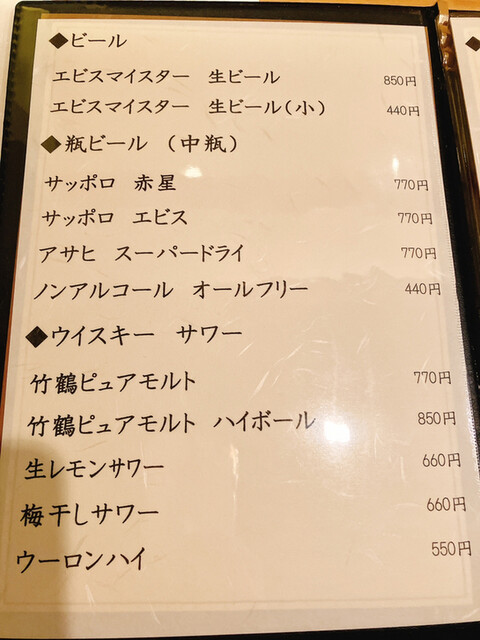 ◆ビール
ヱビスマイスター 生ビール 850円
ヱビスマイスター 生ビール(小) 440円
◆瓶ビール (中瓶)
サッポロ 赤星 770円
サッポロ エビス 770円
アサヒ スーパードライ 770円
ノンアルコール オールフリー 440円
◆ウイスキー サワー
竹鶴ピュアモルト 770円
竹鶴ピュアモルト ハイボール 850円
生レモンサワー 660円
梅干しサワー 660円
ウーロンハイ 550円